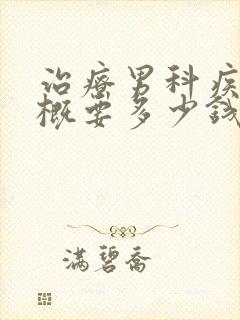 治療男科疾
概要多少錢
滿碧喬